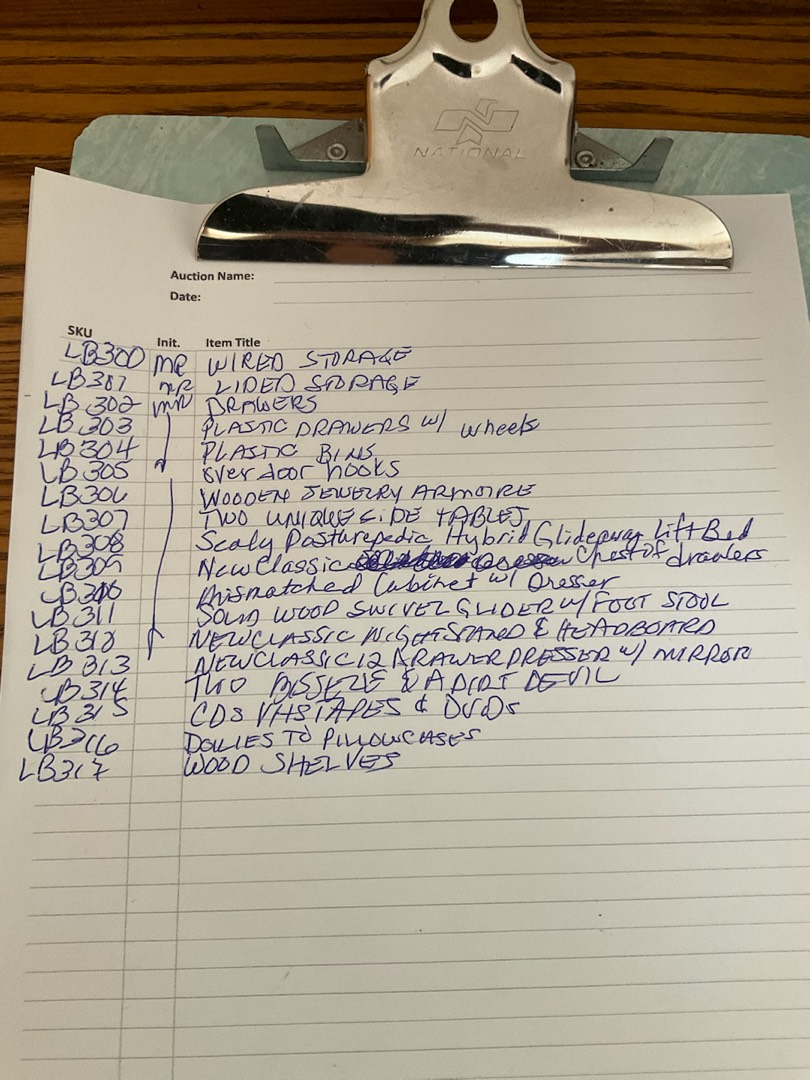 NATIONAL
Auction Name:
Date:
SKU Init. Item Title
LB300 MR WIRED STORAGE
LB301 MR LIDED STORAGE
LB302 MR DRAWERS
LB303 PLASTIC DRAWERS W/ wheels
LB304 PLASTIC BINS
LB305 over door hooks
LB306 WOODEN JEWELRY ARMOIRE
LB307 TWO UNIQUE SIDE TABLES
LB308 Sealy Posturepedic Hybrid Glideaway Lift Bed
LB309 New Classic Chest of drawers
LB310 Mismatched Cabinet w/ Dresser
LB311 SOLID WOOD SWIVEL GLIDER W/ FOOT STOOL
LB312 NEWCLASSIC NIGHTSTAND & HEADBOARD
LB313 NEWCLASSIC 12 DRAWER DRESSER W/ MIRROR
LB314 TWO & A DIRT DEVIL
LB315 CDS VHS TAPES & DVDs
LB316 DOILIES TO PILLOWCASES
LB317 WOOD SHELVES